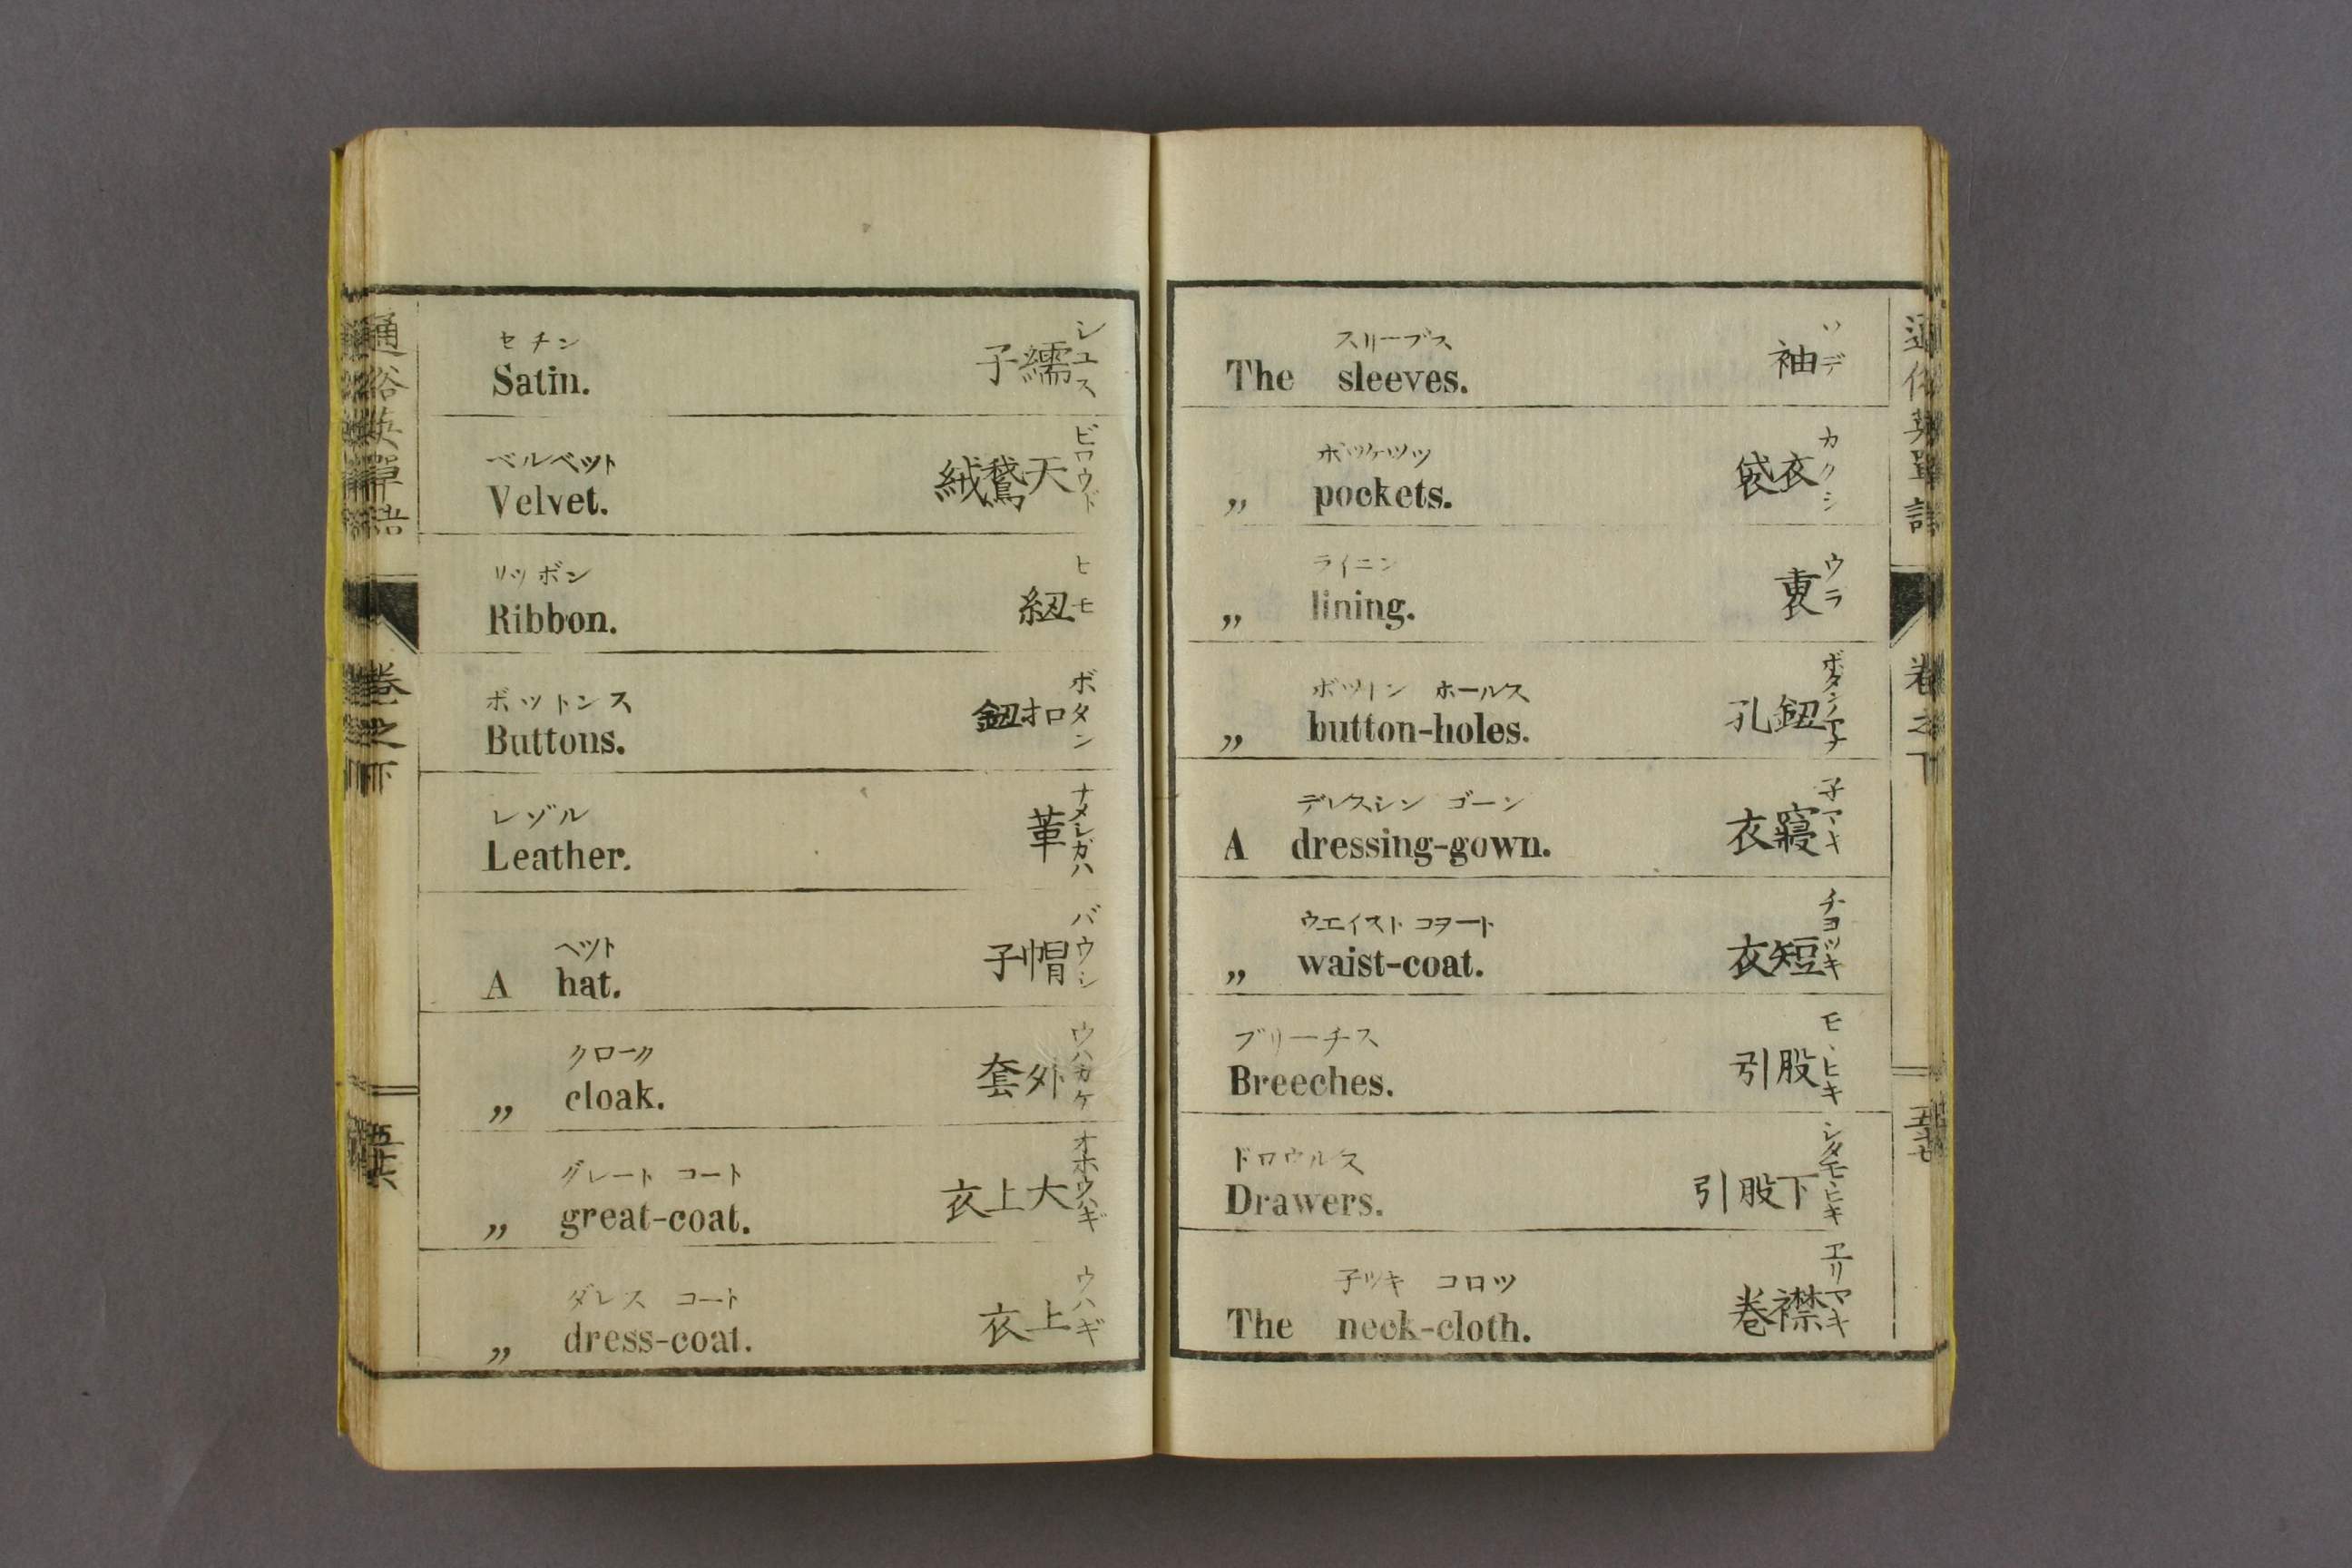 通俗英單語
卷之下
五十六
セチン
Satin.
子繻
シユス
ベルベツト
Velvet.
絨鵞天
ビロウド
リツボン
Ribbon.
紐
ヒモ
ボツトンス
Buttons.
鈕扣
ボタン
レゾル
Leather.
革
ナメシガハ
ヘツト
A hat.
子帽
バウシ
クローク
„ cloak.
套外
ウハカケ
グレート コート
„ great-coat.
衣上大
オホウハギ
ダレス コート
„ dress-coat.
衣上
ウハギ
スリーブス
The sleeves.
袖
ソデ
ポツケツツ
„ pockets.
袋衣
カクシ
ライニン
„ lining.
裏
ウラ
ボツトン ホールス
„ button-holes.
孔鈕
ボタンノアナ
デレスシン ゴーン
A dressing-gown.
衣寢
子マキ
ウエイスト コヲート
„ waist-coat.
衣短
チヨツキ
ブリーチス
Breeches.
引股
モヽヒキ
ドロウルス
Drawers.
引股下
シタモヽヒキ
子ツキ コロツ
The neck-cloth.
卷襟
ヱリマキ
通俗英單語
卷之下
五十七